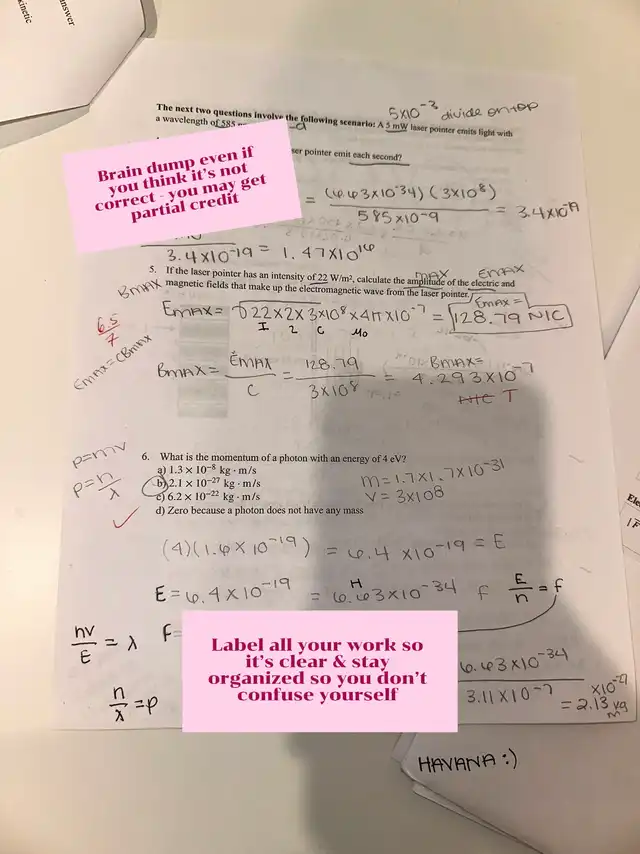 kinetic
answer
5x10⁻³ divide on top
The next two questions involve the following scenario: A 5 mW laser pointer emits light with
a wavelength of 585
ser pointer emit each second?
Brain dump even if
you think it's not
correct - you may get
partial credit
= (6.63x10-34) (3x10⁸) / 585x10-9 = 3.4x10-19
3.4x10-19 = 1.47x10¹⁶
5. If the laser pointer has an intensity of 22 W/m², calculate the amplitude of the electric and
magnetic fields that make up the electromagnetic wave from the laser pointer.
MAX EMAX
BMAX
EMAX= √22x2x3x10⁸x4πx10⁻⁷ = EMAX= 128.79 N/C
I 2 C μ0
6.5/7
EMAX=CBMAX
BMAX= EMAX/C = 128.79/3x10⁸ = BMAX= 4.293x10⁻⁷
N/C T
6. What is the momentum of a photon with an energy of 4 eV?
a) 1.3 × 10⁻⁸ kg · m/s
b) 2.1 × 10⁻²⁷ kg · m/s
c) 6.2 × 10⁻²² kg · m/s
d) Zero because a photon does not have any mass
p=mv
p=h/λ
m=1.7x1.7x10⁻³¹
v=3x10⁸
(4)(1.6x10⁻¹⁹) = 6.4x10⁻¹⁹ = E
E=6.4x10⁻¹⁹ = 6.63x10⁻³⁴ f E/h = f
H
hv/E = λ
F=
h/λ =p
Label all your work so
it's clear & stay
organized so you don't
confuse yourself
6.63x10⁻³⁴ / 3.11x10⁻⁷
x10⁻²⁷
= 2.13 kg m
HAVANA :)
Ele
1 F